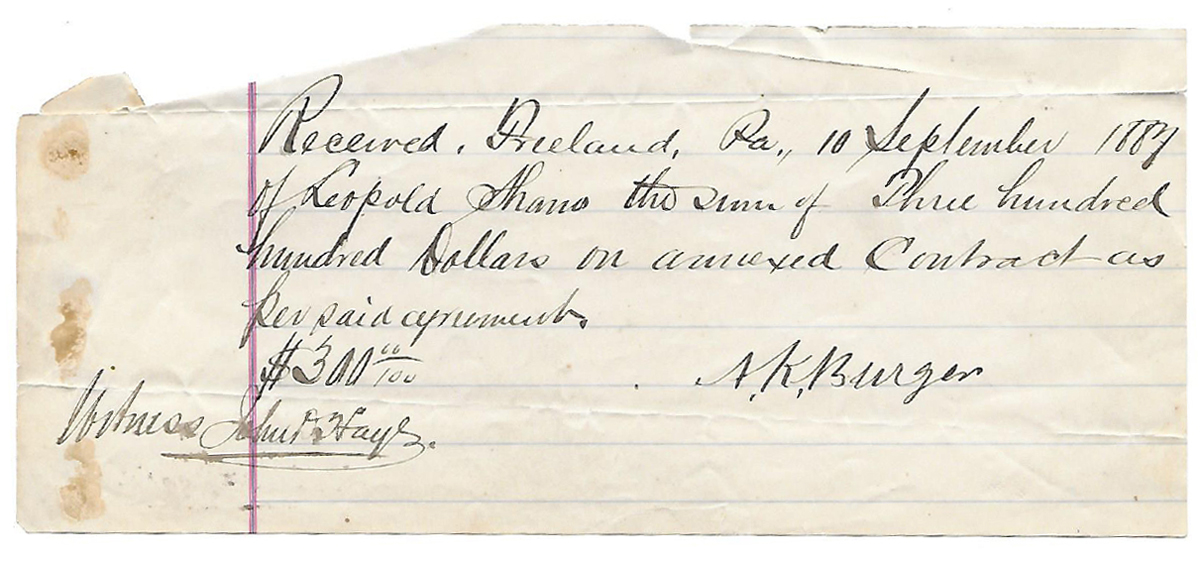 Received, Freeland, Pa., 10 September 1887
of Leopold Shano the sum of Three hundred
hundred Dollars on annexed Contract as
per said agreement.
$300 00/100 A. K. Burger
Witness John D. Hayes.